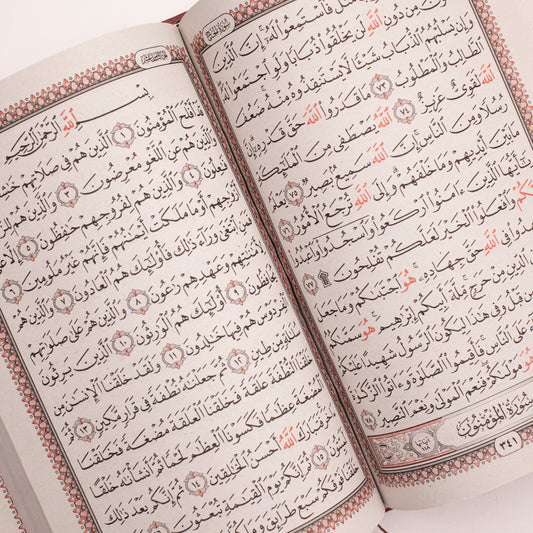 سُورَةُ الحَجِّ
مَثَلٌ فَٱسْتَمِعُوا۟ لَهُۥٓ ۚ إِنَّ ٱلَّذِينَ
مِن دُونِ ٱللَّهِ لَن يَخْلُقُوا۟ ذُبَابًا وَلَوِ ٱجْتَمَعُوا۟ لَهُۥ
وَإِن يَسْلُبْهُمُ ٱلذُّبَابُ شَيْـًٔا لَّا يَسْتَنقِذُوهُ مِنْهُ ۚ ضَعُفَ
ٱلطَّالِبُ وَٱلْمَطْلُوبُ ٧٣ مَا قَدَرُوا۟ ٱللَّهَ حَقَّ قَدْرِهِۦٓ ۗ إِنَّ
ٱللَّهَ لَقَوِىٌّ عَزِيزٌ ٧٤ ٱللَّهُ يَصْطَفِى مِنَ ٱلْمَلَـٰٓئِكَةِ
رُسُلًا وَمِنَ ٱلنَّاسِ ۚ إِنَّ ٱللَّهَ سَمِيعٌۢ بَصِيرٌ ٧٥ يَعْلَمُ
مَا بَيْنَ أَيْدِيهِمْ وَمَا خَلْفَهُمْ ۗ وَإِلَى ٱللَّهِ تُرْجَعُ ٱلْأُمُورُ
٧٦ يَـٰٓأَيُّهَا ٱلَّذِينَ ءَامَنُوا۟ ٱرْكَعُوا۟ وَٱسْجُدُوا۟ وَٱعْبُدُوا۟
رَبَّكُمْ وَٱفْعَلُوا۟ ٱلْخَيْرَ لَعَلَّكُمْ تُفْلِحُونَ ۩ ٧٧
فِى ٱللَّهِ حَقَّ جِهَادِهِۦ ۚ هُوَ ٱجْتَبَىٰكُمْ وَمَا جَعَلَ
ٱلدِّينِ مِنْ حَرَجٍ ۚ مِّلَّةَ أَبِيكُمْ إِبْرَٰهِيمَ ۚ هُوَ سَمَّىٰكُمُ
مِن قَبْلُ وَفِى هَـٰذَا لِيَكُونَ ٱلرَّسُولُ شَهِيدًا عَلَيْكُمْ
عَلَى ٱلنَّاسِ ۚ فَأَقِيمُوا۟ ٱلصَّلَوٰةَ وَءَاتُوا۟ ٱلزَّكَوٰةَ
هُوَ مَوْلَىٰكُمْ ۖ فَنِعْمَ ٱلْمَوْلَىٰ وَنِعْمَ ٱلنَّصِيرُ ٧٨
سُورَةُ المُؤْمِنُونَ
٣٤١
بِسْمِ ٱللَّهِ ٱلرَّحْمَـٰنِ ٱلرَّحِيمِ
قَدْ أَفْلَحَ ٱلْمُؤْمِنُونَ ١ ٱلَّذِينَ هُمْ فِى صَلَاتِهِمْ خَـٰشِعُونَ
٢ وَٱلَّذِينَ هُمْ عَنِ ٱللَّغْوِ مُعْرِضُونَ ٣ وَٱلَّذِينَ هُمْ
لِلزَّكَوٰةِ فَـٰعِلُونَ ٤ وَٱلَّذِينَ هُمْ لِفُرُوجِهِمْ حَـٰفِظُونَ ٥ إِلَّا
عَلَىٰٓ أَزْوَٰجِهِمْ أَوْ مَا مَلَكَتْ أَيْمَـٰنُهُمْ فَإِنَّهُمْ غَيْرُ مَلُومِينَ ٦
فَمَنِ ٱبْتَغَىٰ وَرَآءَ ذَٰلِكَ فَأُو۟لَـٰٓئِكَ هُمُ ٱلْعَادُونَ ٧ وَٱلَّذِينَ هُمْ
لِأَمَـٰنَـٰتِهِمْ وَعَهْدِهِمْ رَٰعُونَ ٨ وَٱلَّذِينَ هُمْ عَلَىٰ صَلَوَٰتِهِمْ
يُحَافِظُونَ ٩ أُو۟لَـٰٓئِكَ هُمُ ٱلْوَٰرِثُونَ ١٠ ٱلَّذِينَ يَرِثُونَ
ٱلْفِرْدَوْسَ هُمْ فِيهَا خَـٰلِدُونَ ١١ وَلَقَدْ خَلَقْنَا ٱلْإِنسَـٰنَ مِن
سُلَـٰلَةٍ مِّن طِينٍ ١٢ ثُمَّ جَعَلْنَـٰهُ نُطْفَةً فِى قَرَارٍ مَّكِينٍ ١٣
ثُمَّ خَلَقْنَا ٱلنُّطْفَةَ عَلَقَةً فَخَلَقْنَا ٱلْعَلَقَةَ مُضْغَةً فَخَلَقْنَا
ٱلْمُضْغَةَ عِظَـٰمًا فَكَسَوْنَا ٱلْعِظَـٰمَ لَحْمًا ثُمَّ أَنشَأْنَـٰهُ خَلْقًا
ءَاخَرَ ۚ فَتَبَارَكَ ٱللَّهُ أَحْسَنُ ٱلْخَـٰلِقِينَ ١٤ ثُمَّ إِنَّكُم بَعْدَ ذَٰلِكَ
ثُمَّ إِنَّكُمْ يَوْمَ ٱلْقِيَـٰمَةِ تُبْعَثُونَ ١٦
فَوْقَكُمْ سَبْعَ طَرَآئِقَ وَمَا